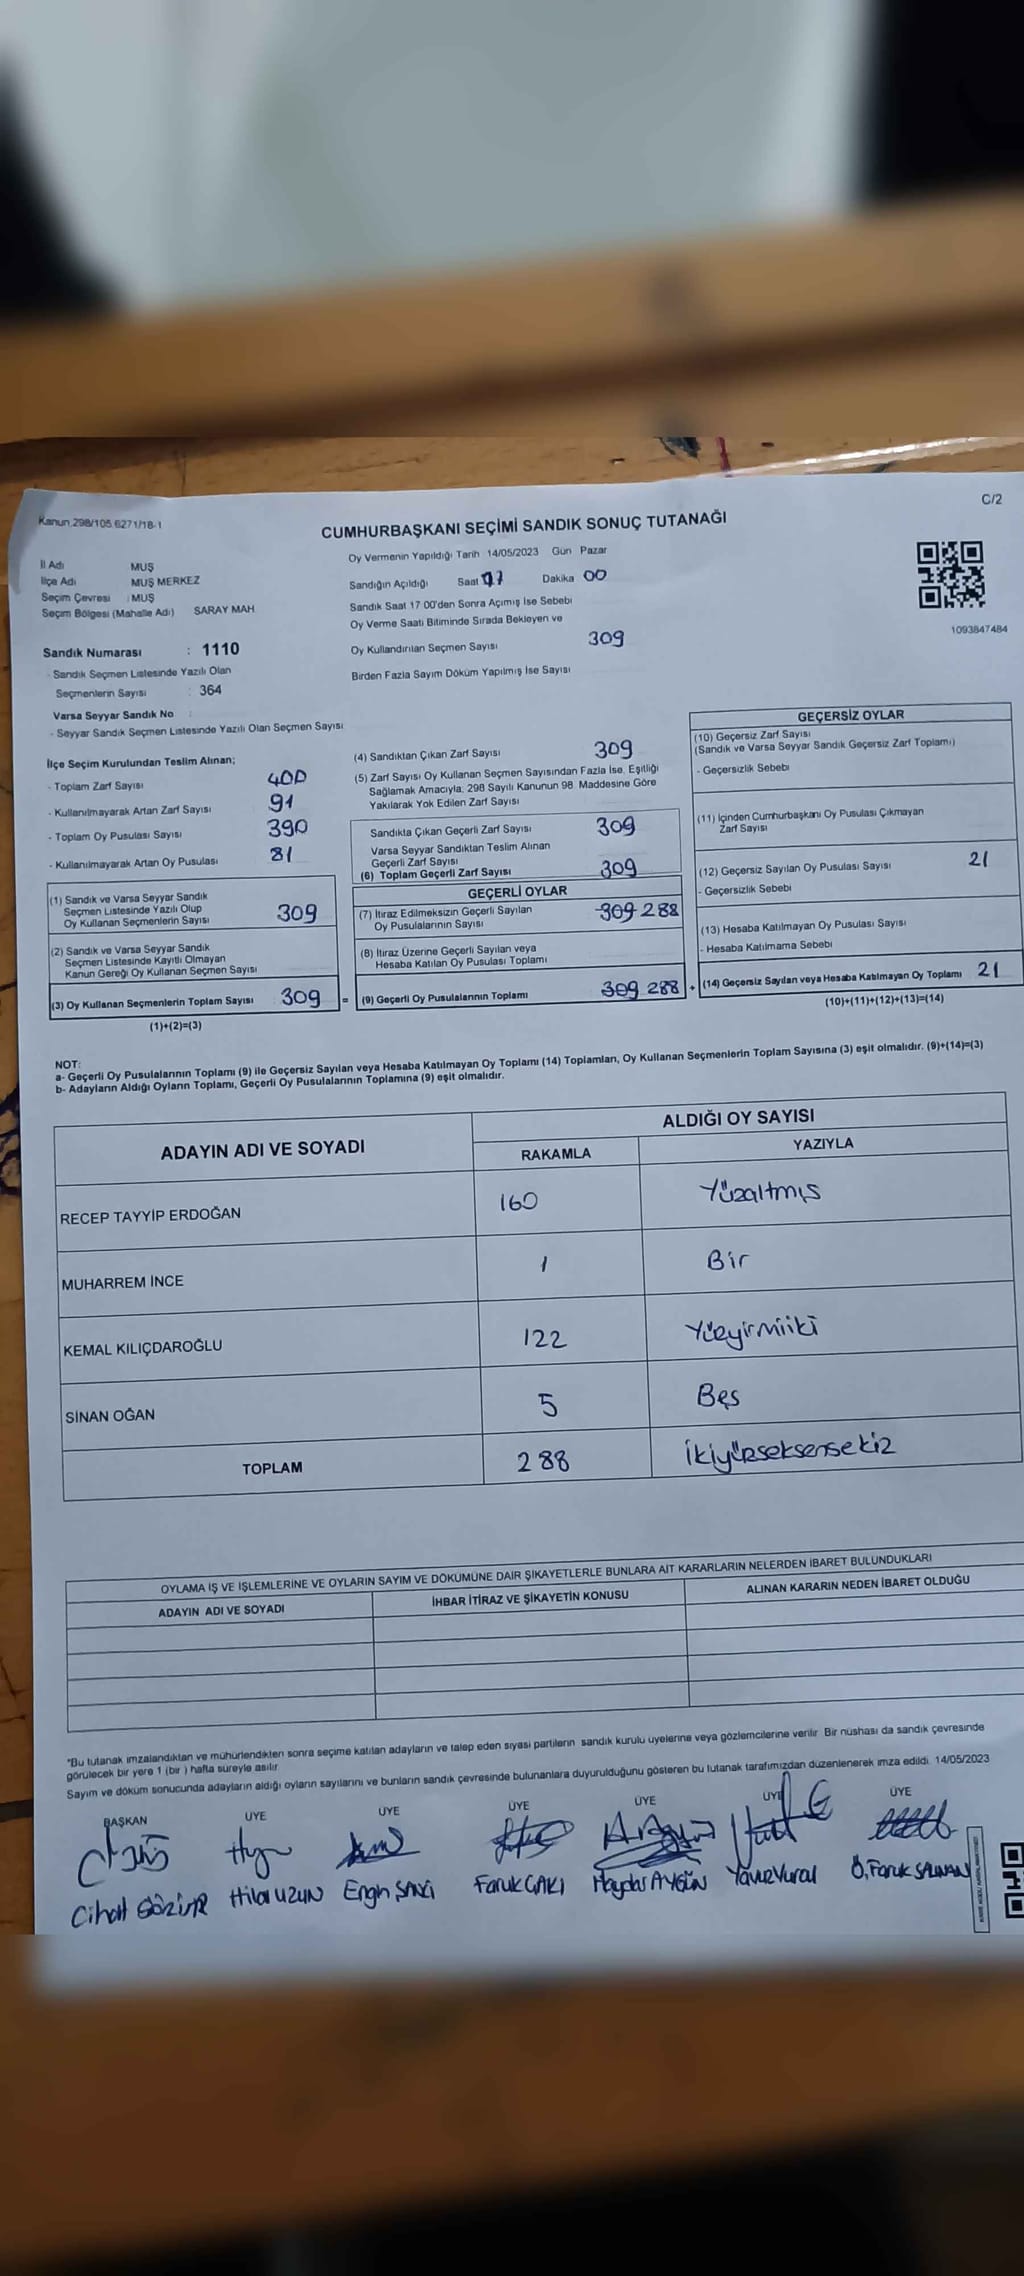 Kanun 298/105 6271/18-1
C/2
CUMHURBAŞKANI SEÇİMİ SANDIK SONUÇ TUTANAĞI
İl Adı MUŞ
İlçe Adı MUŞ MERKEZ
Seçim Çevresi MUŞ
Seçim Bölgesi (Mahalle Adı) SARAY MAH
Sandık Numarası : 1110
- Sandık Seçmen Listesinde Yazılı Olan
Seçmenlerin Sayısı : 364
Varsa Seyyar Sandık No :
- Seyyar Sandık Seçmen Listesinde Yazılı Olan Seçmen Sayısı
Oy Vermenin Yapıldığı Tarih 14/05/2023 Gün Pazar
Sandığın Açıldığı Saat 17 Dakika 00
Sandık Saat 17 00'den Sonra Açımış İse Sebebi
Oy Verme Saati Bitiminde Sırada Bekleyen ve
Oy Kullandırılan Seçmen Sayısı 309
Birden Fazla Sayım Döküm Yapılmış İse Sayısı
1093847484
İlçe Seçim Kurulundan Teslim Alınan;
- Toplam Zarf Sayısı 400
- Kullanılmayarak Artan Zarf Sayısı 91
- Toplam Oy Pusulası Sayısı 390
- Kullanılmayarak Artan Oy Pusulası 81
(1) Sandık ve Varsa Seyyar Sandık
Seçmen Listesinde Yazılı Olup
Oy Kullanan Seçmenlerin Sayısı 309
(2) Sandık ve Varsa Seyyar Sandık
Seçmen Listesinde Kayıtlı Olmayan
Kanun Gereği Oy Kullanan Seçmen Sayısı
(3) Oy Kullanan Seçmenlerin Toplam Sayısı 309 =
(1)+(2)=(3)
(4) Sandıktan Çıkan Zarf Sayısı 309
(5) Zarf Sayısı Oy Kullanan Seçmen Sayısından Fazla İse, Eşitliği
Sağlamak Amacıyla, 298 Sayılı Kanunun 98. Maddesine Göre
Yakılarak Yok Edilen Zarf Sayısı
Sandıkta Çıkan Geçerli Zarf Sayısı 309
Varsa Seyyar Sandıktan Teslim Alınan
Geçerli Zarf Sayısı
(6) Toplam Geçerli Zarf Sayısı 309
GEÇERLİ OYLAR
(7) İtiraz Edilmeksizin Geçerli Sayılan
Oy Pusulalarının Sayısı 309 288
(8) İtiraz Üzerine Geçerli Sayılan veya
Hesaba Katılan Oy Pusulası Toplamı
(9) Geçerli Oy Pusulalarının Toplamı 309 288 +
GEÇERSİZ OYLAR
(10) Geçersiz Zarf Sayısı
(Sandık ve Varsa Seyyar Sandık Geçersiz Zarf Toplamı)
- Geçersizlik Sebebi
(11) İçinden Cumhurbaşkanı Oy Pusulası Çıkmayan
Zarf Sayısı
(12) Geçersiz Sayılan Oy Pusulası Sayısı 21
- Geçersizlik Sebebi
(13) Hesaba Katılmayan Oy Pusulası Sayısı
- Hesaba Katılmama Sebebi
(14) Geçersiz Sayılan veya Hesaba Katılmayan Oy Toplamı 21
(10)+(11)+(12)+(13)=(14)
NOT:
a- Geçerli Oy Pusulalarının Toplamı (9) ile Geçersiz Sayılan veya Hesaba Katılmayan Oy Toplamı (14) Toplamları, Oy Kullanan Seçmenlerin Toplam Sayısına (3) eşit olmalıdır. (9)+(14)=(3)
b- Adayların Aldığı Oyların Toplamı, Geçerli Oy Pusulalarının Toplamına (9) eşit olmalıdır.
ADAYIN ADI VE SOYADI
ALDIĞI OY SAYISI
RAKAMLA YAZIYLA
RECEP TAYYİP ERDOĞAN 160 Yüzaltmış
MUHARREM İNCE 1 Bir
KEMAL KILIÇDAROĞLU 122 Yüzyirmiiki
SİNAN OĞAN 5 Beş
TOPLAM 288 İkiyüzseksensekiz
OYLAMA İŞ VE İŞLEMLERİNE VE OYLARIN SAYIM VE DÖKÜMÜNE DAİR ŞİKAYETLERLE BUNLARA AİT KARARLARIN NELERDEN İBARET BULUNDUKLARI
ADAYIN ADI VE SOYADI İHBAR İTİRAZ VE ŞİKAYETİN KONUSU ALINAN KARARIN NEDEN İBARET OLDUĞU
*Bu tutanak imzalandıktan ve mühürlendikten sonra seçime katılan adayların ve talep eden siyasi partilerin sandık kurulu üyelerine veya gözlemcilerine verilir. Bir nüshası da sandık çevresinde
görülecek bir yere 1 (bir ) hafta süreyle asılır.
Sayım ve döküm sonucunda adayların aldığı oyların sayılarını ve bunların sandık çevresinde bulunanlara duyurulduğunu gösteren bu tutanak tarafımızdan düzenlenerek imza edildi. 14/05/2023
BAŞKAN ÜYE ÜYE ÜYE ÜYE ÜYE ÜYE
Cihat Hilal UZUN Engin Faruk ÇAKI Haydar AYGÜN Yavuz Vural Ö. Faruk